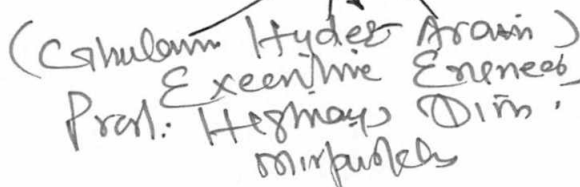 (Ghulam Hyder Arain)
Executive Engineer
Prol: Highways Divn:
Mirpurkhas